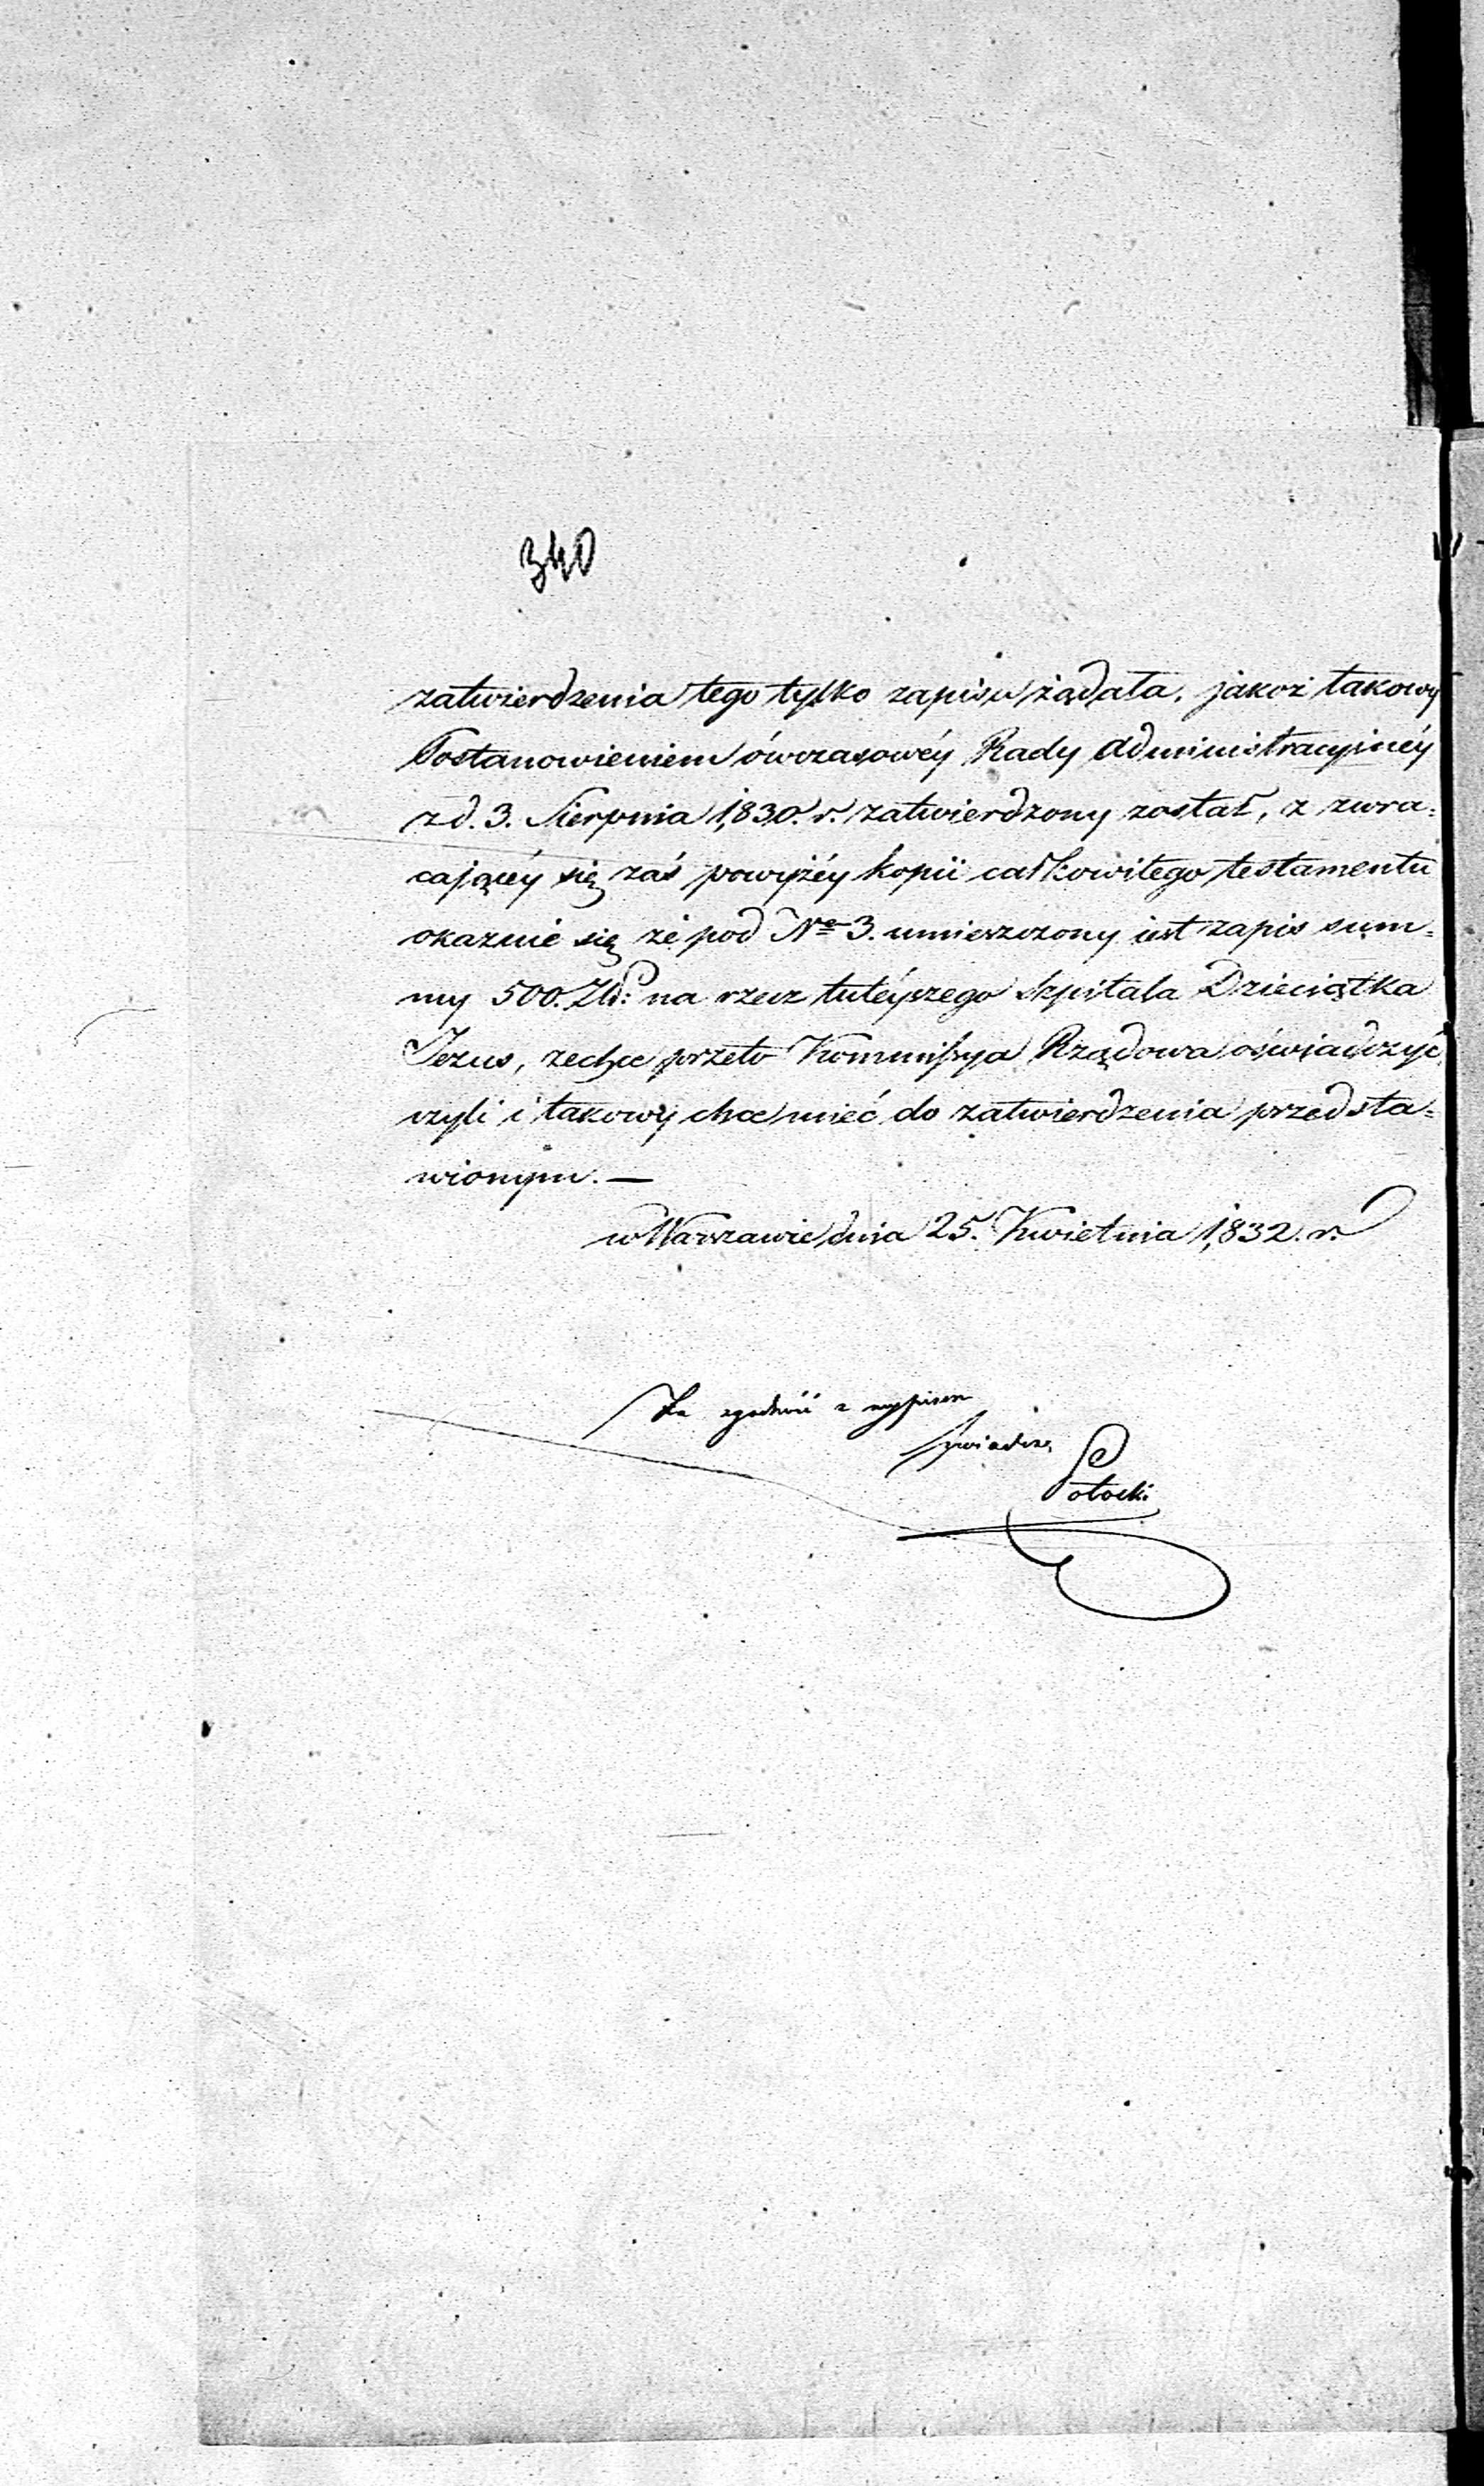 340
zatwierdzenia tego tylko zapisu żądała, jakoż takowy
Postanowieniem ówczasowéy Rady Administracyinéy
z d. 3. Sierpnia 1,830. r. zatwierdzony został, z zwra=
cającéy się zaś powyżéy kopii całkowitego testamentu
okazuie się że pod Nº 3. umieszczony iest zapis sum=
my 500. Złł: na rzecz tutéyszego Szpitala Dzieciątka
Jezus, zechce przeto Kommissya Rządowa oświadczyć,
czyli i takowy chce mieć do zatwierdzenia przedsta=
wionym. —
w Warszawie dnia 25. Kwietnia 1,832. r.
Za zgodność z wypisem
świadczę
Potocki